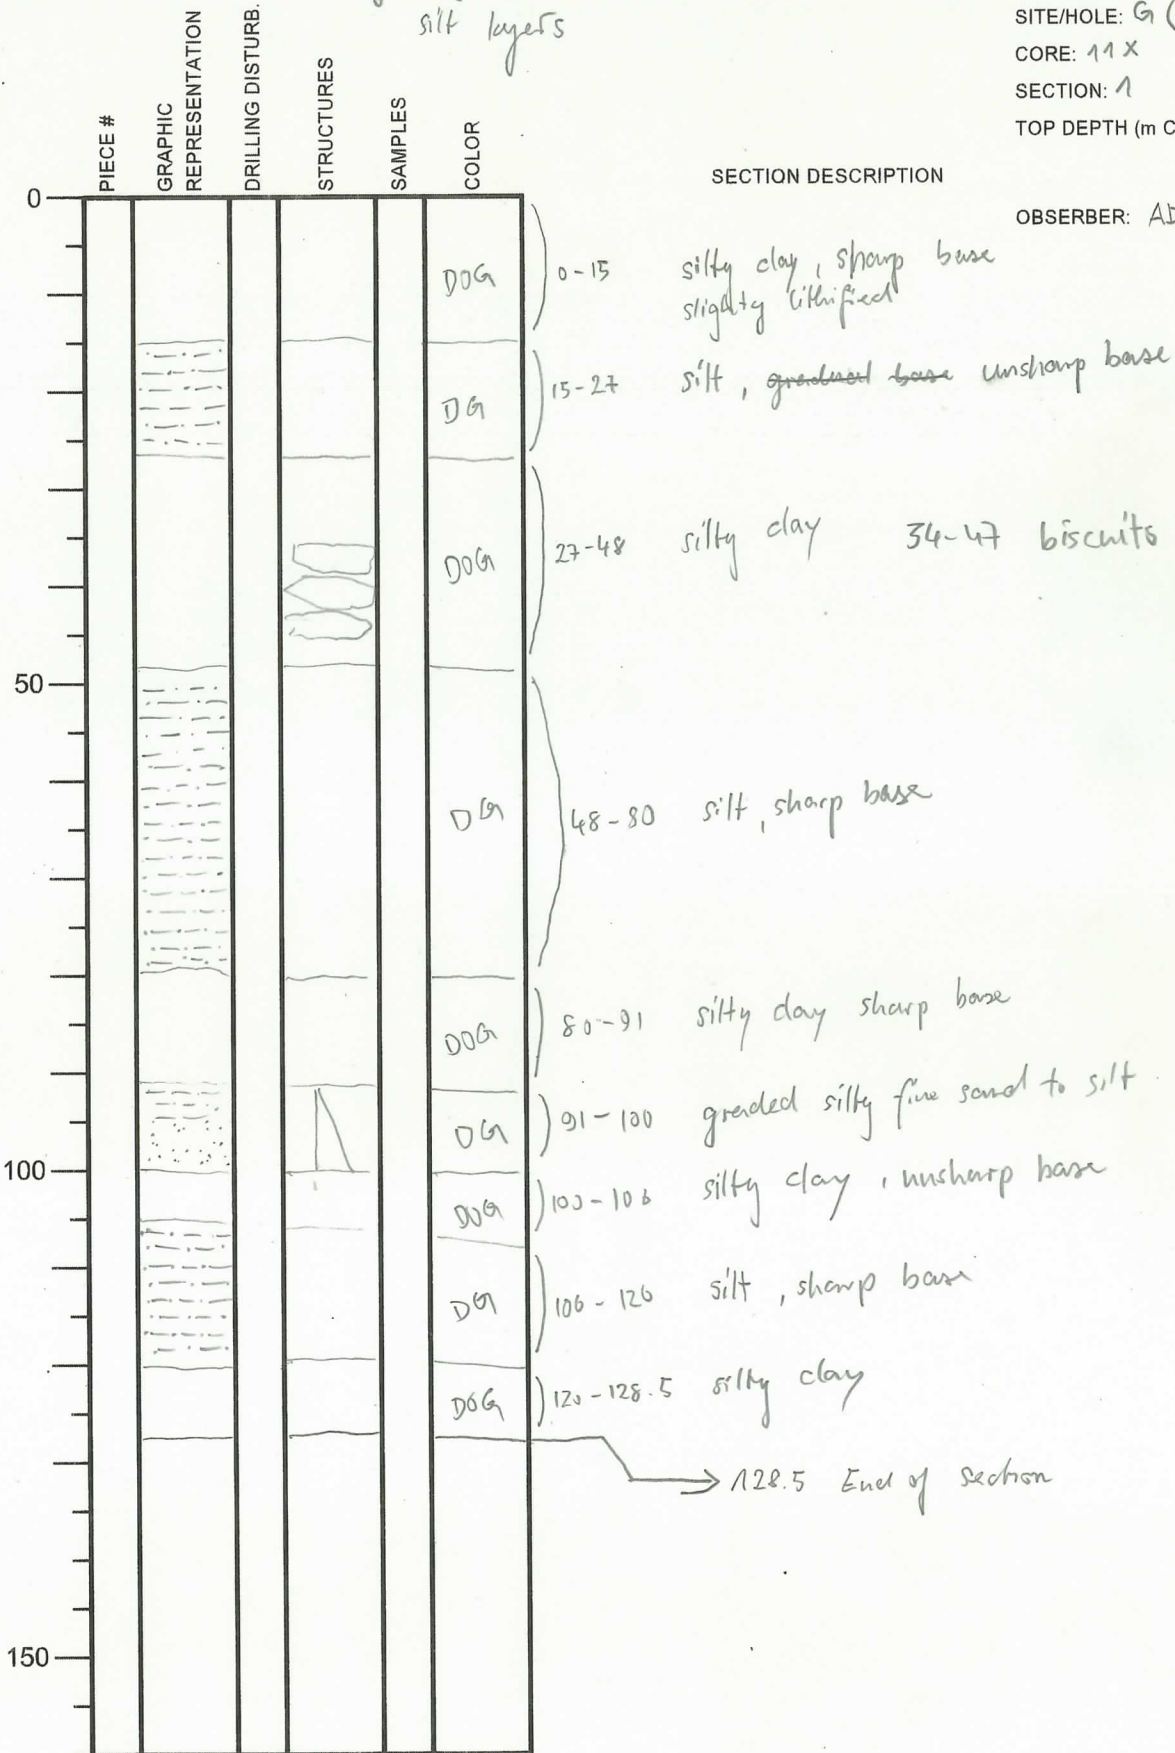 silt layers
SITE/HOLE: G (
CORE: 11X
SECTION: 1
TOP DEPTH (m C
PIECE #
GRAPHIC
REPRESENTATION
DRILLING DISTURB.
STRUCTURES
SAMPLES
COLOR
SECTION DESCRIPTION
OBSERBER:
0
DOG 0-15 silty clay, sharp base
slighty lithified
DG 15-27 silt, gradual base unsharp base
DOG 27-48 silty clay 34-47 biscuits
50
DG 48-80 silt, sharp base
DOG 80-91 silty clay sharp base
DG 91-100 graded silty fine sand to silt
100
DOG 100-106 silty clay, unsharp base
DG 106-120 silt, sharp base
DOG 120-128.5 silty clay
128.5 End of section
150